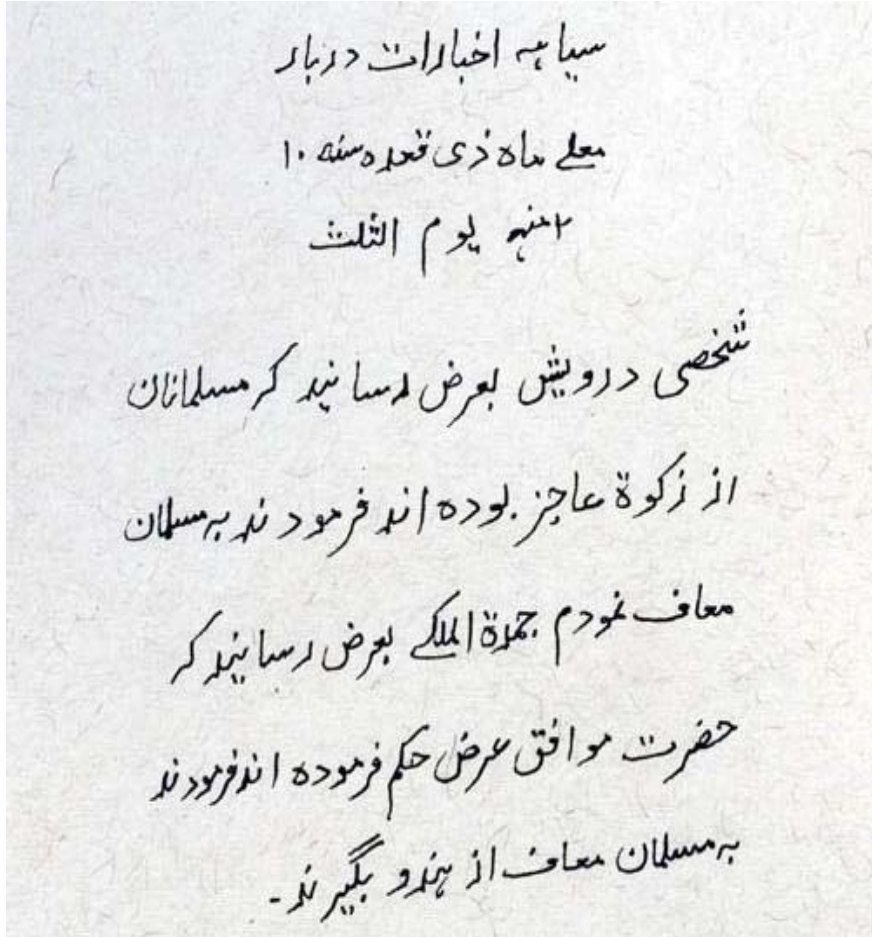 سیاهه اخبارات دربار
معلے ماہ ذی قعدہ سنہ ۱۰
۲ منہ یوم الثلث
شخصی درویش بعرض رسانید کہ مسلمانان
از زکوة عاجز بودہ اند فرمودند بہ مسلمان
معاف نمودم جمدة الملکے بعرض رسانید کہ
حضرت موافق عرض حکم فرمودہ اند فرمودند
بہ مسلمان معاف از ہندو بگیرند۔